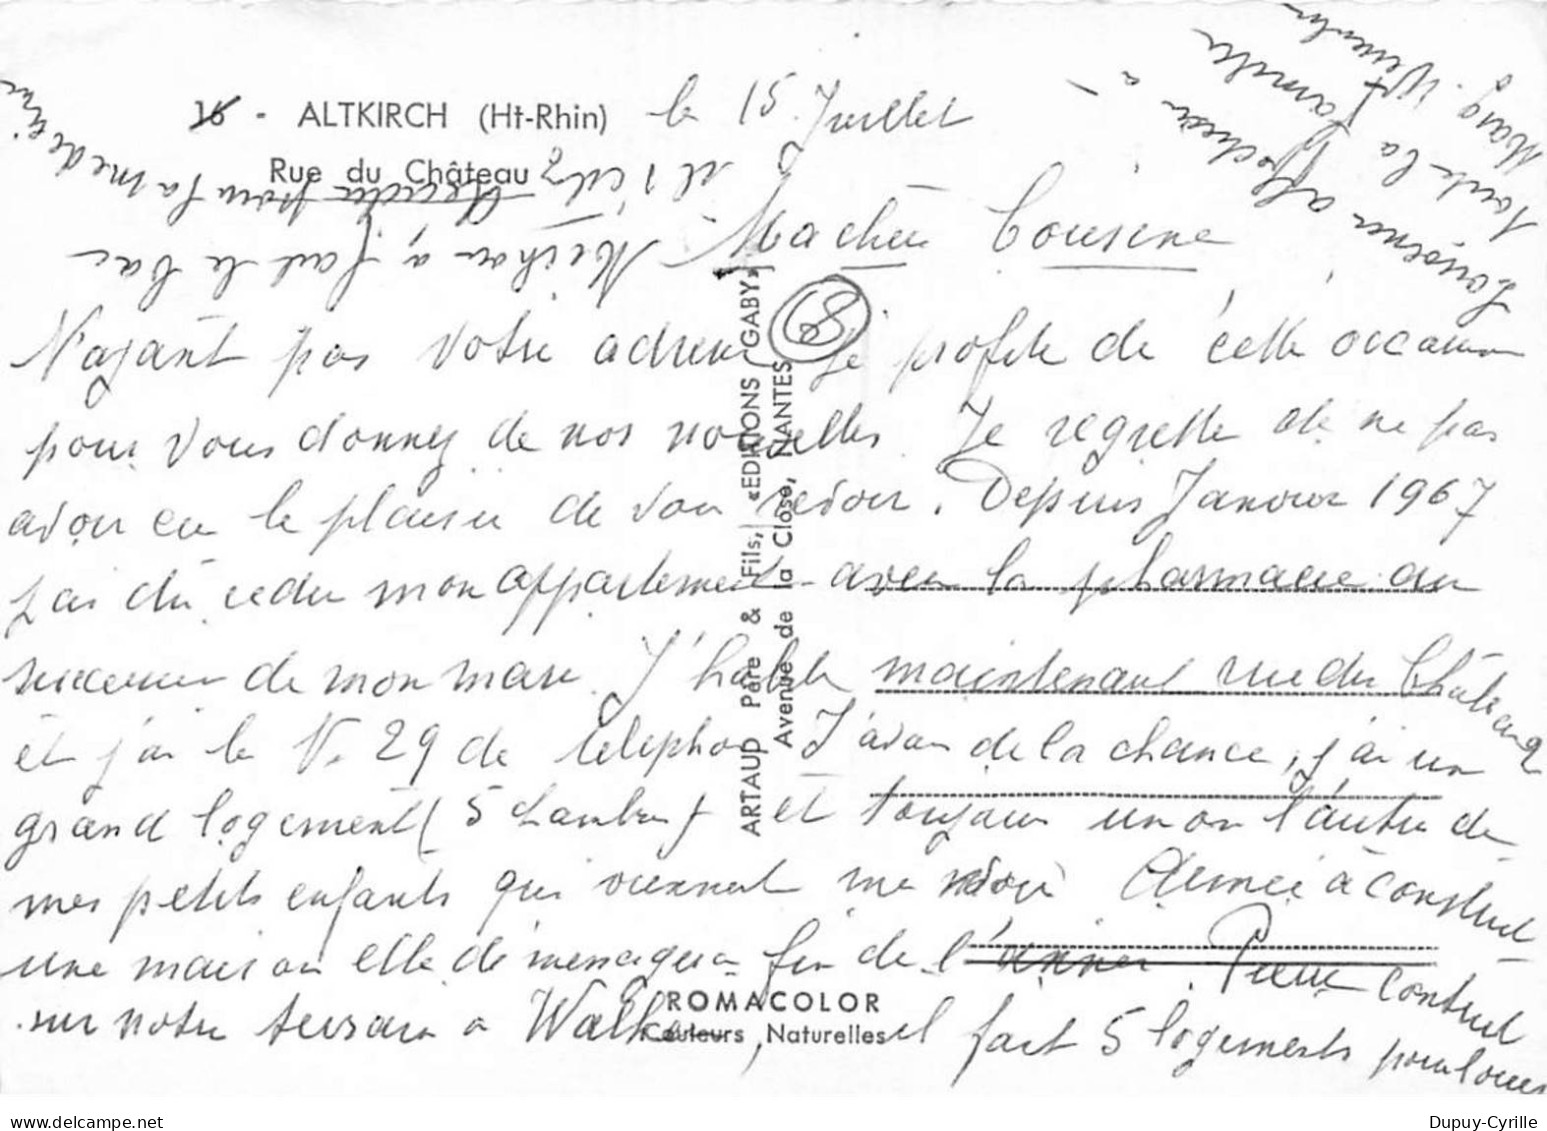 16 - ALTKIRCH (Ht-Rhin) le 15 Juillet
Rue du Château
Ma chère Cousine
N'ayant pas votre adresse je profite de cette occasion
pour vous donner de nos nouvelles. Je regrette de ne pas
avoir eu le plaisir de vous revoir. Depuis Janvier 1967
j'ai dû céder mon appartement avec la pharmacie au
successeur de mon mari. J'habite maintenant rue du Château
et j'ai le N° 29 de téléphone J'avais de la chance, j'ai un
grand logement (5 chambres) et toujours un ou l'autre de
mes petits enfants qui viennent me voir Aimée à construit
une maison elle déménagera fin de l'année. Pierre construit
sur notre terrain à Walheim, il fait 5 logements pour louer
Meihou a fait le bac
il s'est
pour la médecine
toute la famille
Marg.
ARTAUD Père & Fils, «EDITIONS GABY»
Avenue de la Close, NANTES
68
ROMACOLOR
Couleurs Naturelles
www.delcampe.net
Dupuy-Cyrille